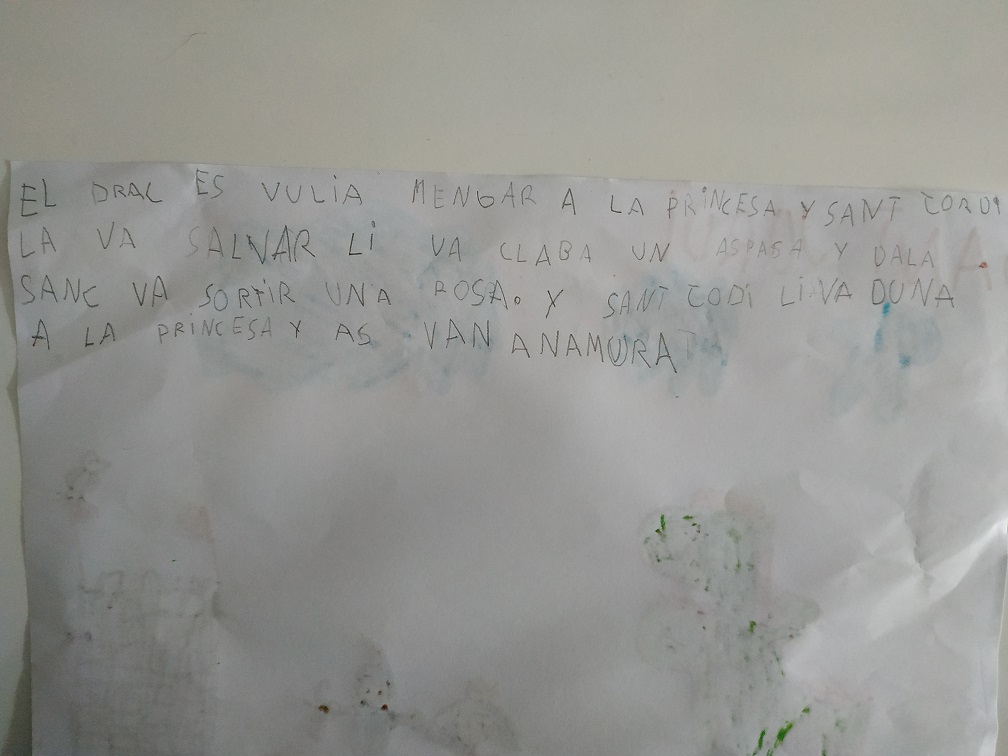 EL DRAC ES VULIA MENGAR A LA PRiNCESA Y SANT JORDI
LA VA SALVAR Li VA CLABA UN ASPASA Y DALA
SANC VA SORTIR UNA ROSA. Y SANT JODi Li VA DUNA
A LA PRiNCESA Y AS VAN ANAMURAT